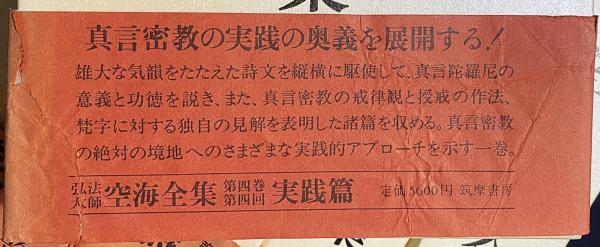 真言密教の実践の奥義を展開する!
雄大な気韻をたたえた詩文を縦横に駆使して、真言陀羅尼の
意義と功徳を説き、また、真言密教の戒律観と授戒の作法、
梵字に対する独自の見解を表明した諸篇を収める。真言密教
の絶対の境地へのさまざまな実践的アプローチを示す一巻。
弘法大師 空海全集 第四巻 第四回 実践篇 定価5600円 筑摩書房